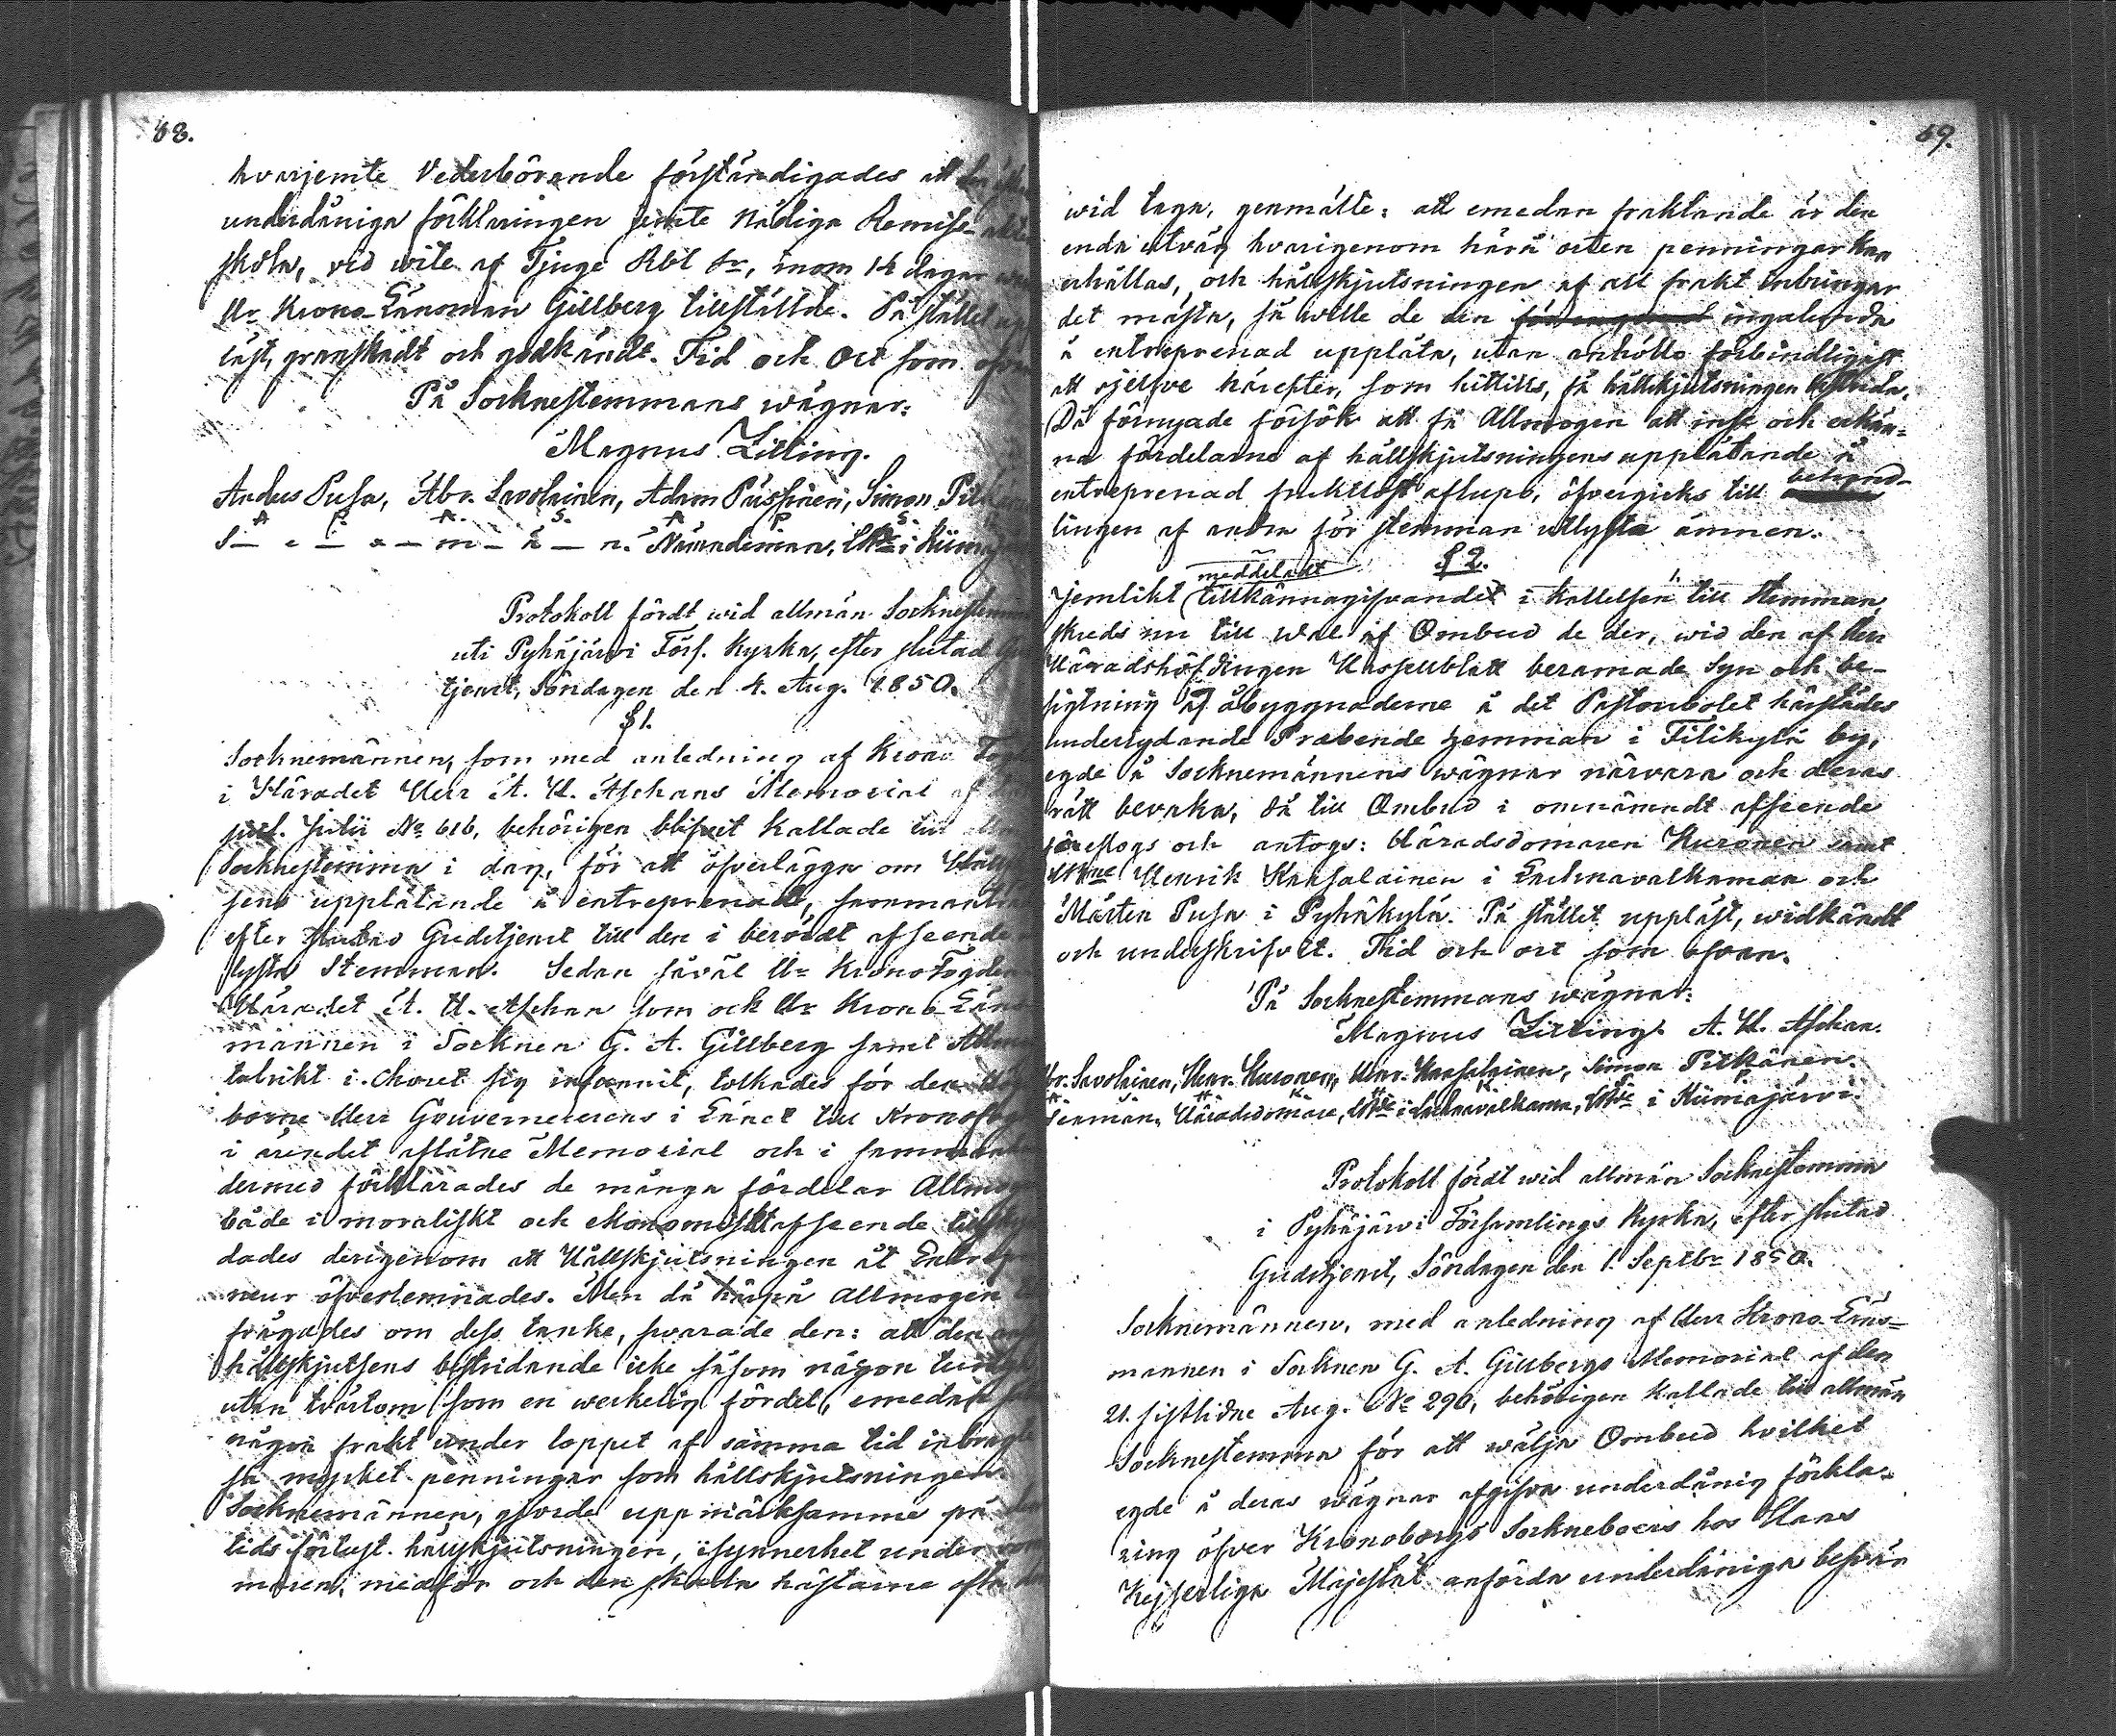 68.
hvarjemte Vederbörande förständigades att
underdåniga förklaringen jemte Nådiga Remiss-
sköla, vid wite af Tjuge Rbl Sr, inom 14 dagar
Hr Krono-Länsman Gillberg tillställde. På stället upp
läst, granskadt och godkändt. Tid och Ort som ofvan
På Socknestemmans wägnar:
Magnus Zilling.
Anders Pusa, Abr. Savolainen, Adam Pässinen, Simon Pitkänen
A P. A. S. A P S.
S – e – x – m – ä – n. Nämndeman, i Kiimajärvi
Protokoll fördt wid allmän Socknestemma
uti Pyhäjärvi Förs. Kyrka, efter slutad Gudst
tjenst, Söndagen den 4. Aug. 1850.
§ 1.
Socknemännen, som med anledning af Krono Fogden
i Häradet Herr A. H. Aschans Memorial af
Julii No 616, behörigen blifvit kallade till
Socknestemma i dag, för att öfverlägga om Håll
sens upplåtande å entreprenad,
efter slutad Gudstjenst till den i berördt afseende
lysta Stemman. Sedan såväl Hr KronoFogden
Häradet A. H. Aschan som ock Hr Krono-Läns
mannen i Socknen G. A. Gillberg samt Allmo
talrikt i Choret sig infunnit, tolkades för den
borne Herr Gouverneurens i Länet till Kronofog
i ärendet aflåtne Memorial och i sammanhang
dermed förklarades de många fördelar Allmogen
både i moraliskt och ekonomiskt afseende
dades derigenom att Hållskjutsningen åt Entrepr
neur öfverlemnades. Men då härpå allmogen
frågades om dess tanke, svarade den: att den
hållskjutsens bestridande icke såsom någon tunga
utan tvärtom som en werkelig fördel, emedan
någon frakt under loppet af samma tid inbragte
så mycket penningar som hållskjutsningen.
Socknemännen, gjorde uppmärksamme på
tids förlust hållskjutsningen, isynnerhet under
maren, medför och den skada hästarne ofta
69.
wid taga, genmälte: att emedan fraktande är den
enda utväg hvarigenom härå orten penningar kan
erhållas, och hållskjutsningen af all frakt inbringar
det mästa, så wille de den ingalunda
å entreprenad upplåta, utan anhöllo förbindligast
att sjelfve härefter, som hittills, få hållskjutsningen bestrida.
Då förnyade försök att få Allmogen att inse och erkän-
na fördelarna af hållskjutsningens upplåtande å
entreprenad fruktlöst aflupo, öfvergicks till behand-
lingen af andra för stemman utlysta ämnen.
§ 2.
Jemlikt meddeladt tillkännagifvandet i kallelsen till Stemman,
skreds nu till wal af Ombud de der, wid den af Herr
Häradshöfdingen Hasselblatt beramade Syn och be-
sigtning af åbyggnaderne å det Pastorsbolet härstädes
underlydande Præbende hemman i Tiitikylä by,
egde å Socknemännens wägnar närvara och deras
rätt bevaka, då till Ombud i omnämndt afseende
föreslogs och antogs: Häradsdomaren Huronen samt
Henrik Kaasalainen i Enkknavalkaman och
Mårten Pusa i Pyhäkylä. På stället uppläst, widkändt
och underskrifvet. Tid och ort som ofvan.
På Socknestemmans wägnar:
Magnus Zilling. A. H. Aschan.
Abr. Savolainen, Henr. Huronen, Henr. Kaasalainen, Simon Pitkänen.
Sexman, Häradsdomare, i Kiimajärvi.
Protokoll fördt wid allmän Socknestemma
i Pyhäjärvi Församlings Kyrka, efter slutad
Gudstjenst, Söndagen den 1. Septbr 1850.
Socknemännen, med anledning af Herr Krono-Läns-
mannen i Socknen G. A. Gillbergs Memorial af den
21. sistlidne Aug. No 290, behörigen kallade till allmän
Socknestemma för att wälja Ombud hvilket
egde å deras wägnar afgifva underdånig förkla-
ring öfver Kronoborgs Sockneboers hos Hans
Kejserliga Majestät anförda underdåniga besvär